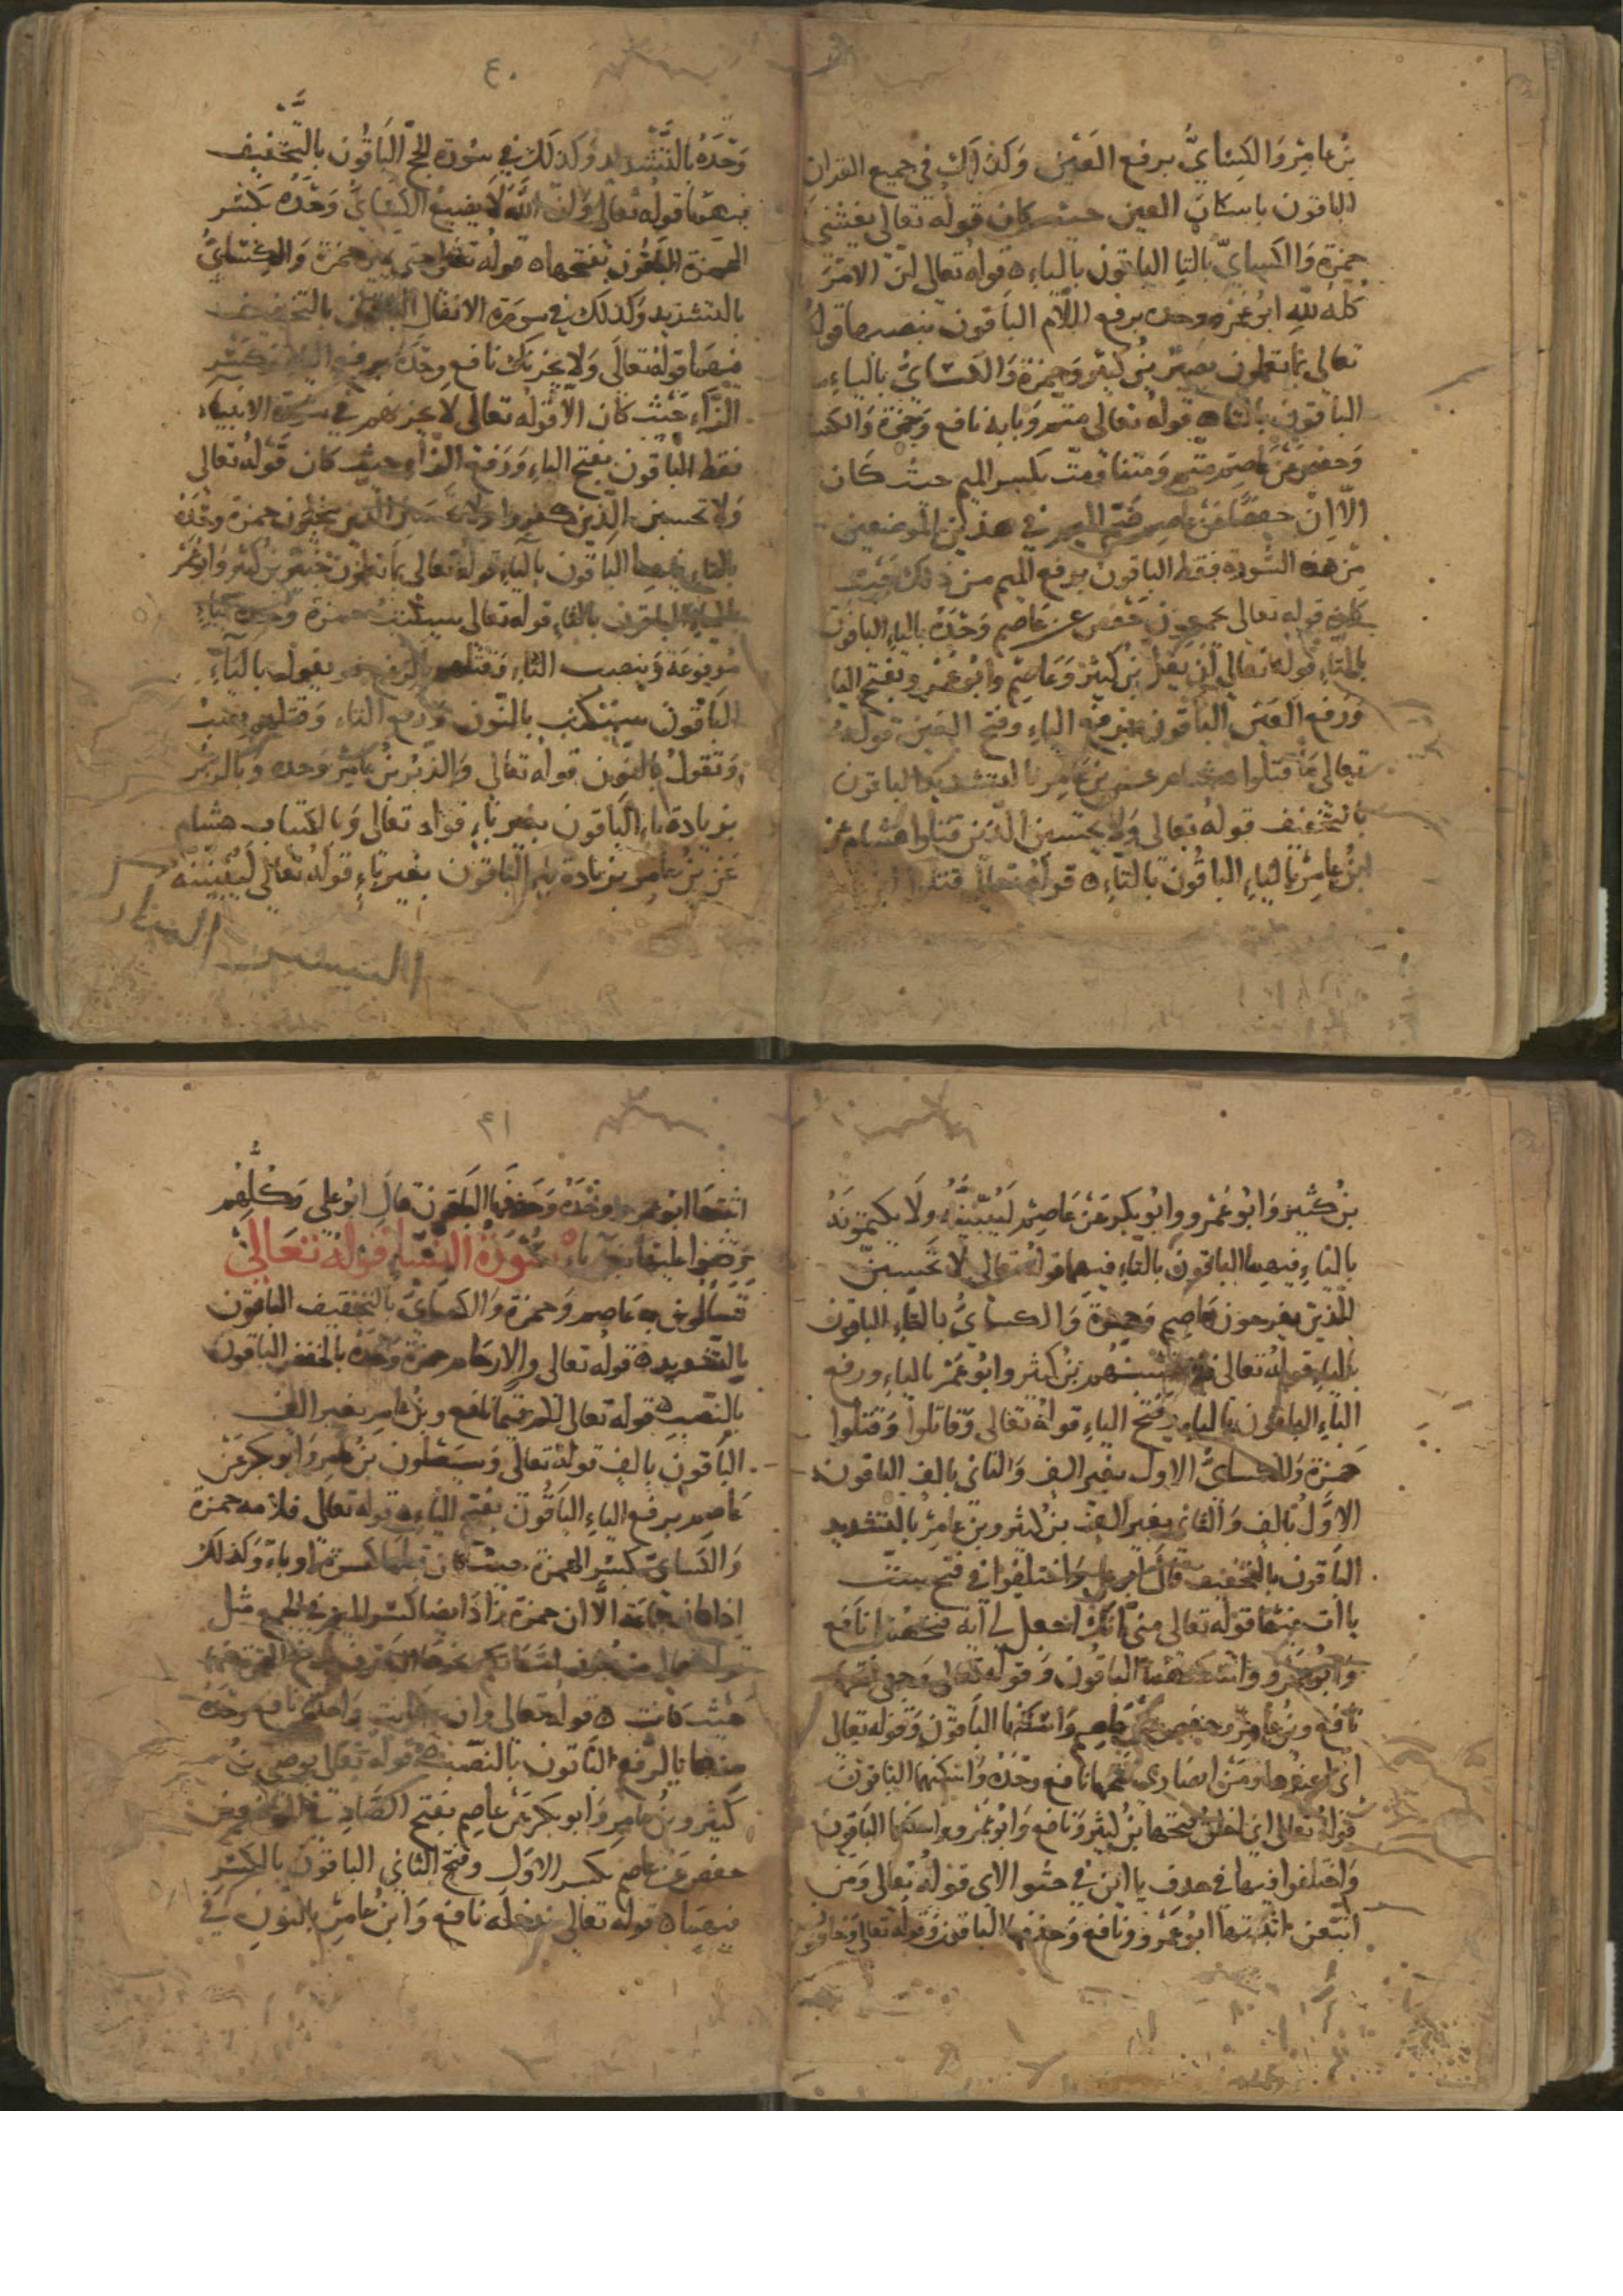 بنُ عامِرٍ وَالكِسَايُّ برفع العَيْن وَكذلك في جميع القران
الباقون باسكان العين حيث كان قوله تعالى يغشى
حمزة وَالكسايّ بالتاءِ الباقون بالياءِ ه قوله تعالى ان الامرَ
كلهُ للهِ ابوُ عَمْرو وحده برفع اللّام الباقون بنصبها قوله
تعالى بما تعملون بصير بنُ كثير وَحمزة وَالكسَايُّ بالياء
الباقون بالتاء ه قولهُ تعالى متم وَبابه نافع وَحمزة وَالكسا
وَحفص عَنْ عاصِم متم وَمتنا وَمت بكسر الميم حيث كان
الاّ انّ حفصًا عَنْ عاصِم ضَمّ الميم في هذين الموضعين
مِنْ هذه السُّورة فقط الباقون برفع الميم من ذلك حَيث
كان قوله تعالى يجمعون حَفص عن عَاصِم وَحْدَهُ بالياءِ الباقون
بالتاءِ قوله تعالى أن يَغلّ بنُ كثيرْ وَعَاصِم وابُو عَمْرو بفتح اليا
وَرفع الغَين الباقون برفع الياءِ وفتح الغين قوله
تعالى مَا قتلوا هشام عن بن عَامِر بالتشديد الباقون
بالتخفيف قولهُ تعالى وَلا يحسبن الّذين قتلوا هشام عن
ابنُ عامِرْ بالياءِ الباقُون بالتّاءِ ه قولهُ تعالى قتلوا
٤٠
وَحْدَهُ بالتّشديد وَكذلكَ في سُورة الحجّ البَاقُون بالتَّخفيف
فيهما قوله تعالى وَانّ الله لا يضيع الكسَايُ وَحْدَهُ بكَسْر
الهمزة الباقون بفتحها ه قولهُ تعالى حتى يميز حمزة وَالكسَايُّ
بالتشديد وَكذلك في سورة الانفال الباقون بالتخفيف
فيهما قولهُ تعالَى وَلا يحزنك نافع وحْدَهُ برفع الياءِ وَكَسْر
الزّاءِ حَيْث كان الاّ قولهُ تعالى لا يحزنهم في سورة الانبياء
فقط البَاقون بفتح الياءِ وَرفع الزاءِ حيث كان قولهُ تعالى
وَلا تحسبن الّذين كفروا وَلا تحسَبَن الّذين يبخلون حمزة وحْدَهُ
بالتاءِ فيهما الباقون بالياءِ قوله تعالى بما تعملون خبير بن كثير وَابُو عَمْر
بالياءِ الباقون بالتاءِ قوله تعالى سيكتبُ حمزة وَحْدَه بياءٍ
مرفوعَة وَبنصب التاءِ وَقتلهم بالرفع وَيقول بالياءِ
الباقون سنكتب بالنّون وَرفع التاءِ وَقتلهم بنصب
وَنقولُ بالنّون قوله تعالى وَالزّبُر بنُ عَامِر وَحده وَبالزبر
بزيادة باءٍ الباقون بغير باءٍ قوله تعالى وَبالكتاب هشام
عَن بنُ عامِر بزيادة باءٍ الباقون بغير باءٍ قولهُ تعالى لَيُبَيّنُنّه
بنُ كثير وَابُو عَمْرو وابُو بكر عَنْ عَاصِم لَيُبَيِّنُنَّهُ وَلا يكتمونَهُ
بالياءِ فيهما الباقون بالتاءِ فيهما قولهُ تعالى لا تَحسبنّ
الّذين يفرحون عَاصِم وَحمزة وَالكسَايُّ بالتاءِ الباقون
بالياءِ قولهُ تعالى فلا تحسبنهم بنُ كثير وابُو عَمْر بالياءِ ورفع
الباءِ الباقون بالتاءِ وَفتح الباءِ قولهُ تعالى وَقاتلوا وَقتلوا
حَمزة وَالكسَايُّ الاول بغير الف وَالثاني بالف الباقون
الاوّل بالف وَالثاني بغير الف بنُ كثير وبن عامِرْ بالتشديد
الباقون بالتخفيف قالَ ابو علي وَاختلفوا في فتح ست
ياات منها قوله تعالى منى انك اجعل لي اية فتحهما نافع
وابُو عمرو وَاسكنهما الباقون وَقوله تعالى وجهى فتحها
نافع وبن عامر وحفص عن عاصِم وَاسكنها الباقون وَقوله تعالى
اني اعيذها ومن انصاري فتحهما نافع وحْدَهُ وَاسكنهما الباقون
قوله تعالى اني اخلق فتحها بنُ كثير وَنافع وَابُو عَمْرو واسكنها الباقون
وَاختلفوا فيها في حذف ياايْن في حشو الاى قولهُ تعالى وَمن
اتبعن اثبتها ابُو عَمْرو ونافع وَحذفها الباقون وقوله تعالى وَخافون
٤١
اثبتها ابوُ عَمرو وحْدَهُ وَحذفها الباقون قال ابوُ علي وَكلّهم
سُورَةُ النّسَاءِ قولهُ تعَالى
تَسَالون به عَاصِم وَحمزة وَالكسَايُّ بالتخفيف الباقون
بالتشديد ه قوله تعالى والارحَام حمزة وَحْدَهُ بالخفض الباقون
بالنّصب ه قوله تعالى لكم قيما نافع وبنُ عامِر بغير الف
الباقون بالف قولهُ تعالى وَسيَصْلون بنُ عَامِر وَابو بكر عَنْ
عَاصِم برفع الياءِ الباقون بفتح الياءِ ه قوله تعالى فلامه حمزة
وَالكسَايُّ بكسْر الهمزة حيث كان قبلها كسرة او ياءٌ وَكذلك
اذا كان جماعَة الاَّ ان حمزة زادَ ايضا كسْر الميم في الجمع مثل
حَيْث كانت ه قوله تعالى وان كانت وَاحدة نافع وحْدَهُ
منها بالرّفع الباقون بالنصب ه قوله تعالى يوصى بن
كثير وبنُ عامِر وَابو بكر عَنْ عاصِم بفتح الصَّاد في الموضعين
حفص عَن عاصِم بكسر الاوّل وفتح الثاني الباقون بالكسْر
فيهما ه قوله تعالى ندخله نافع وَابنُ عامِر بالنون في